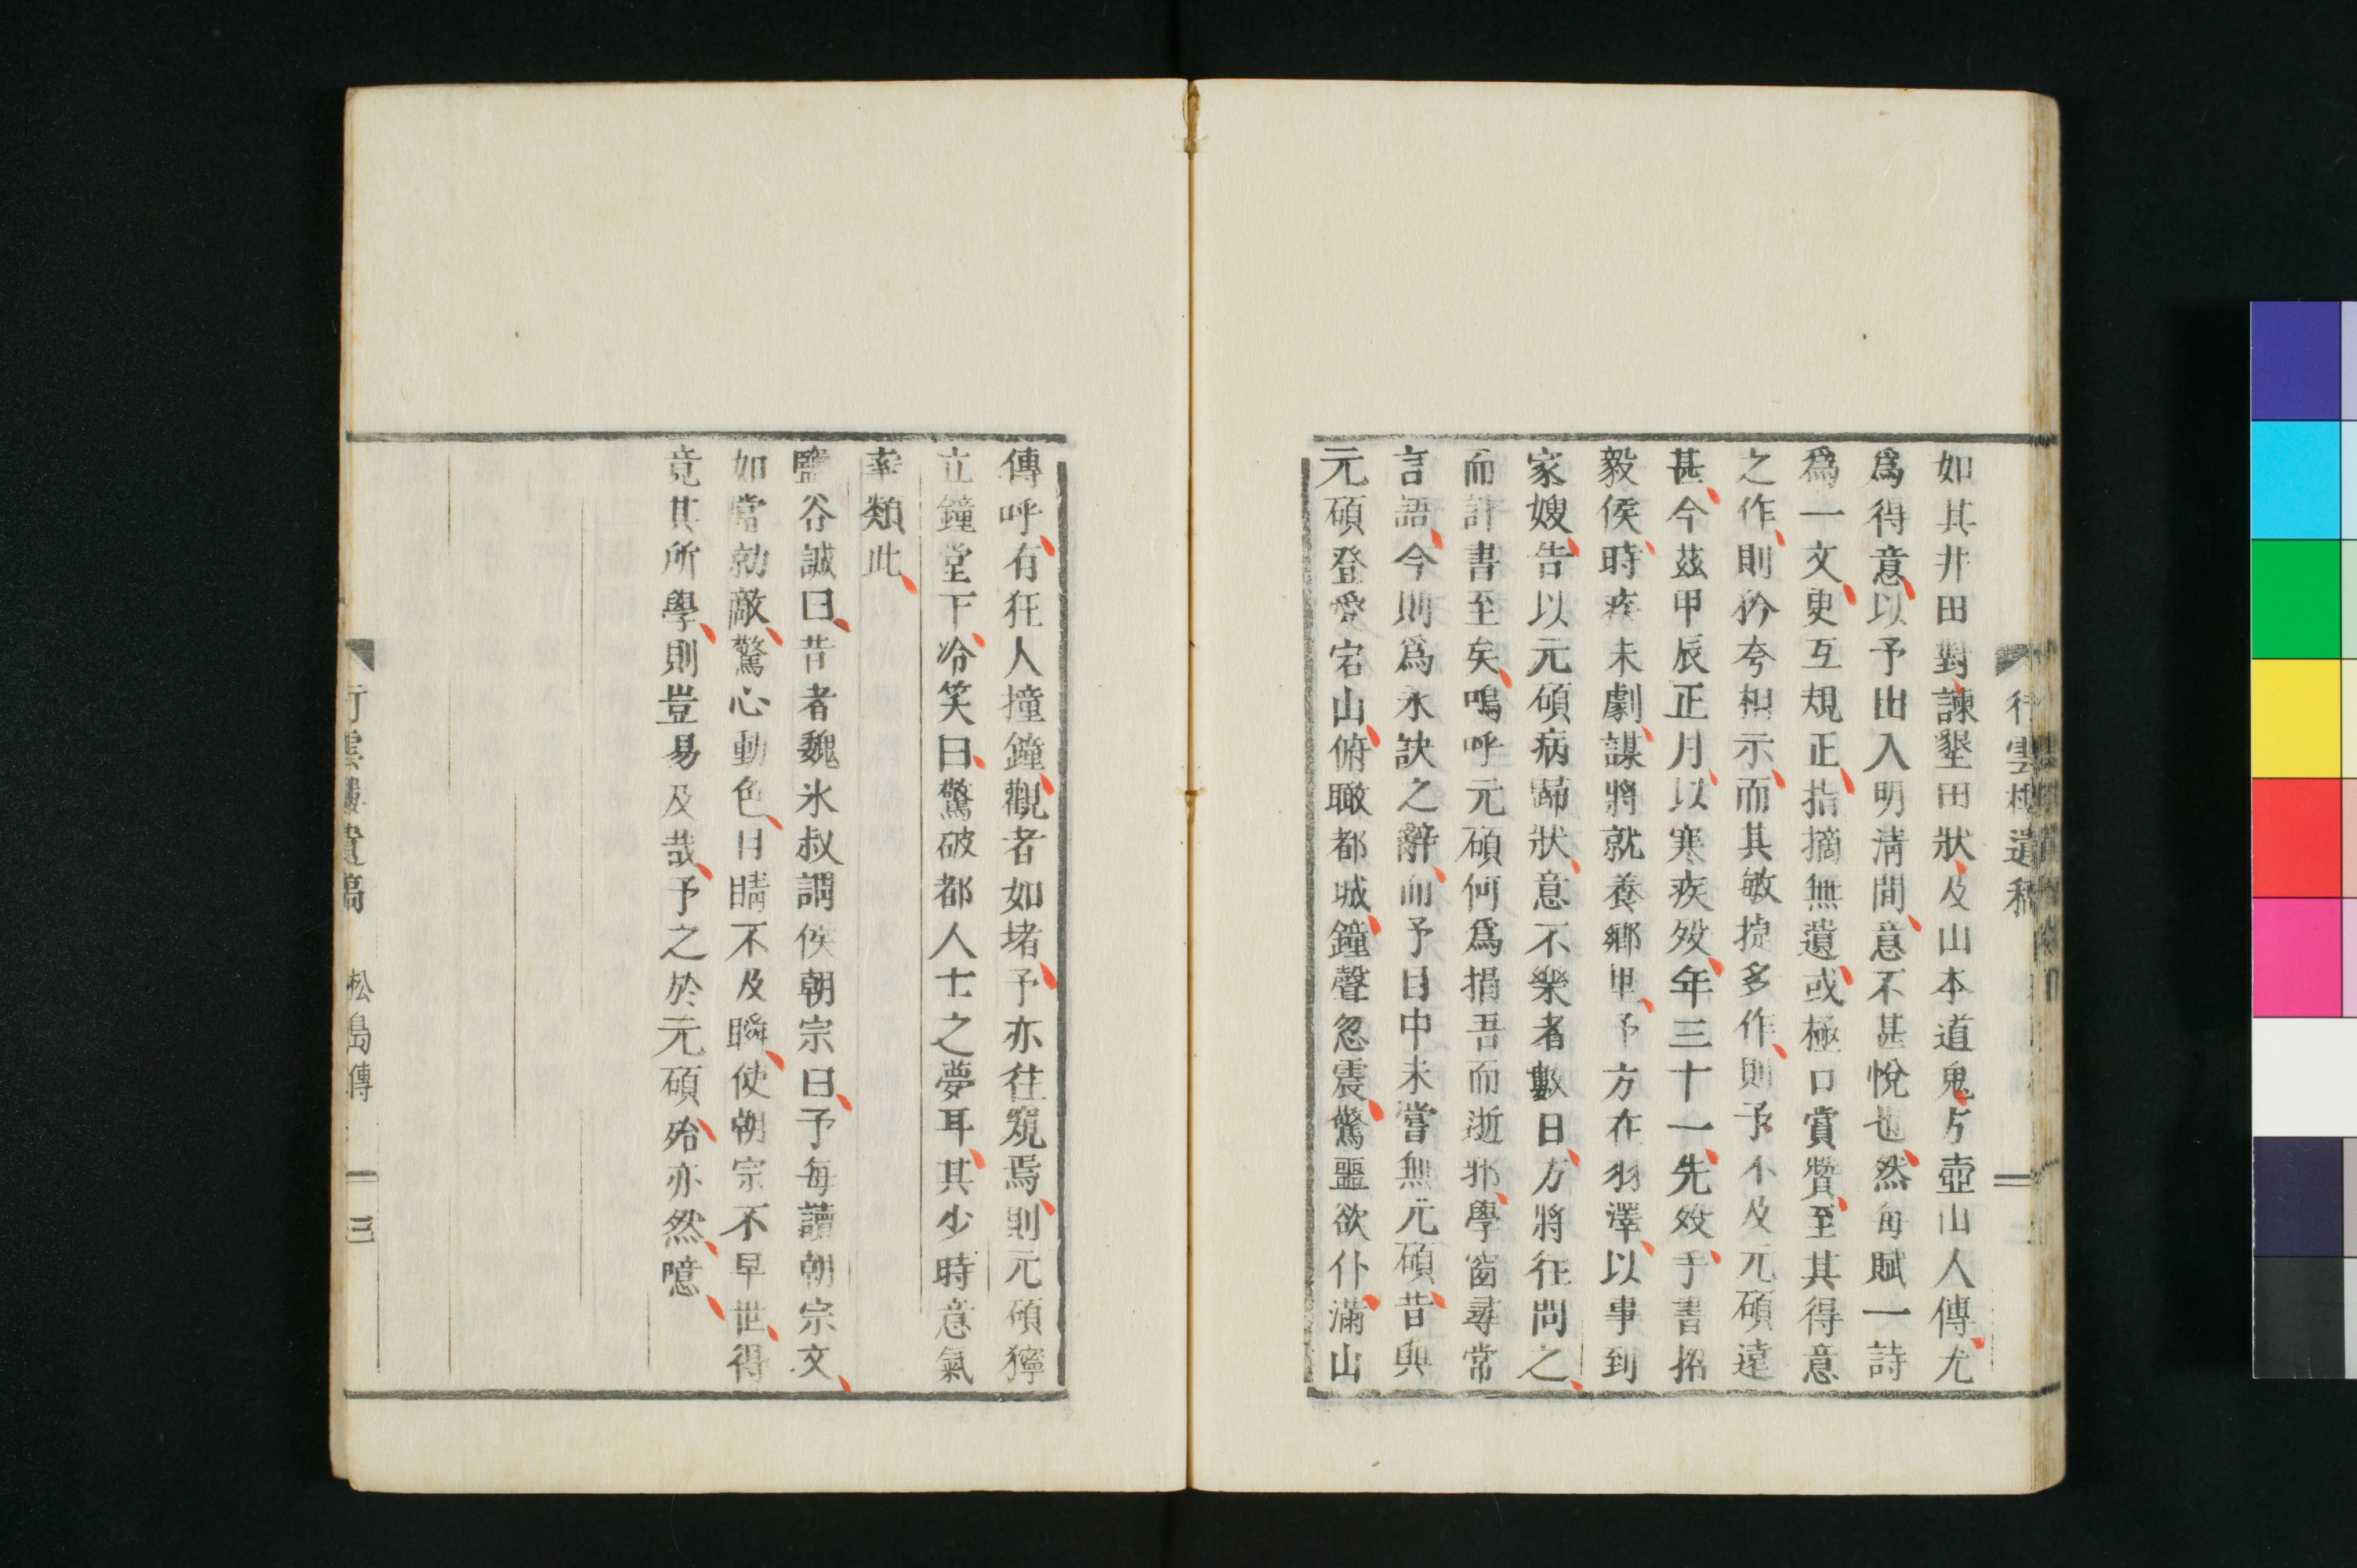 行雲樓遺稿
如其井田對、諫墾田狀、及山本道鬼、方壺山人傳、尤
爲得意、以予出入明淸間、意不甚悅也、然每賦一詩
爲一文、更互規正、指摘無遺、或極口賞贊、至其得意
之作、則矜夸相示、而其敏捷多作、則予不及元碩遠
甚、今茲甲辰正月、以寒疾歿、年三十一、先歿、手書招
毅侯、時疾未劇、謀將就養鄉里、予方在羽澤、以事到
家嫂、告以元碩病篤狀、意不樂者數日、方將往問之、
而訃書至矣、嗚呼元碩何爲捐吾而逝邪、學窗尋常
言語、今則爲永訣之辭、而予目中未嘗無元碩、昔與
元碩登愛宕山、俯瞰都城、鐘聲忽震、驚噩欲仆、滿山
傳呼、有狂人撞鐘、觀者如堵、予亦往窺焉、則元碩獰
立鐘堂下、冷笑曰、驚破都人士之夢耳、其少時意氣
率類此、
鹽谷誠曰、昔者魏氷叔謂侯朝宗曰、予每讀朝宗文、
如當勍敵、驚心動色、目睛不及瞬、使朝宗不早世、得
竟其所學、則豈易及哉、予之於元碩、殆亦然、噫、
行雲樓遺稿 松島傳 三